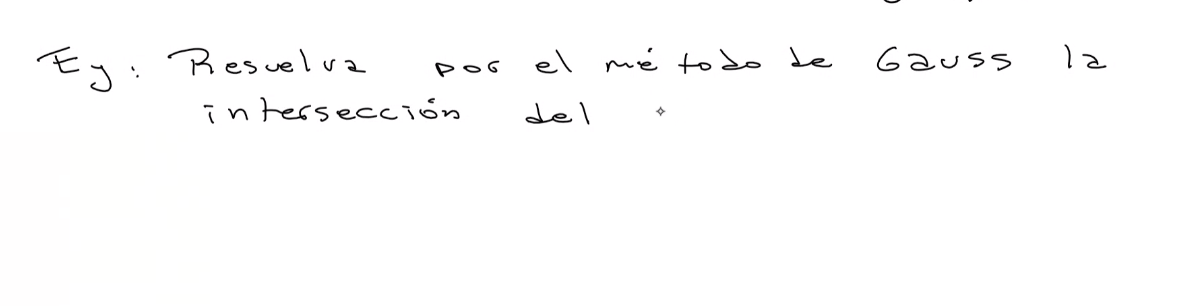 Ej: Resuelva por el método de Gauss la
intersección del